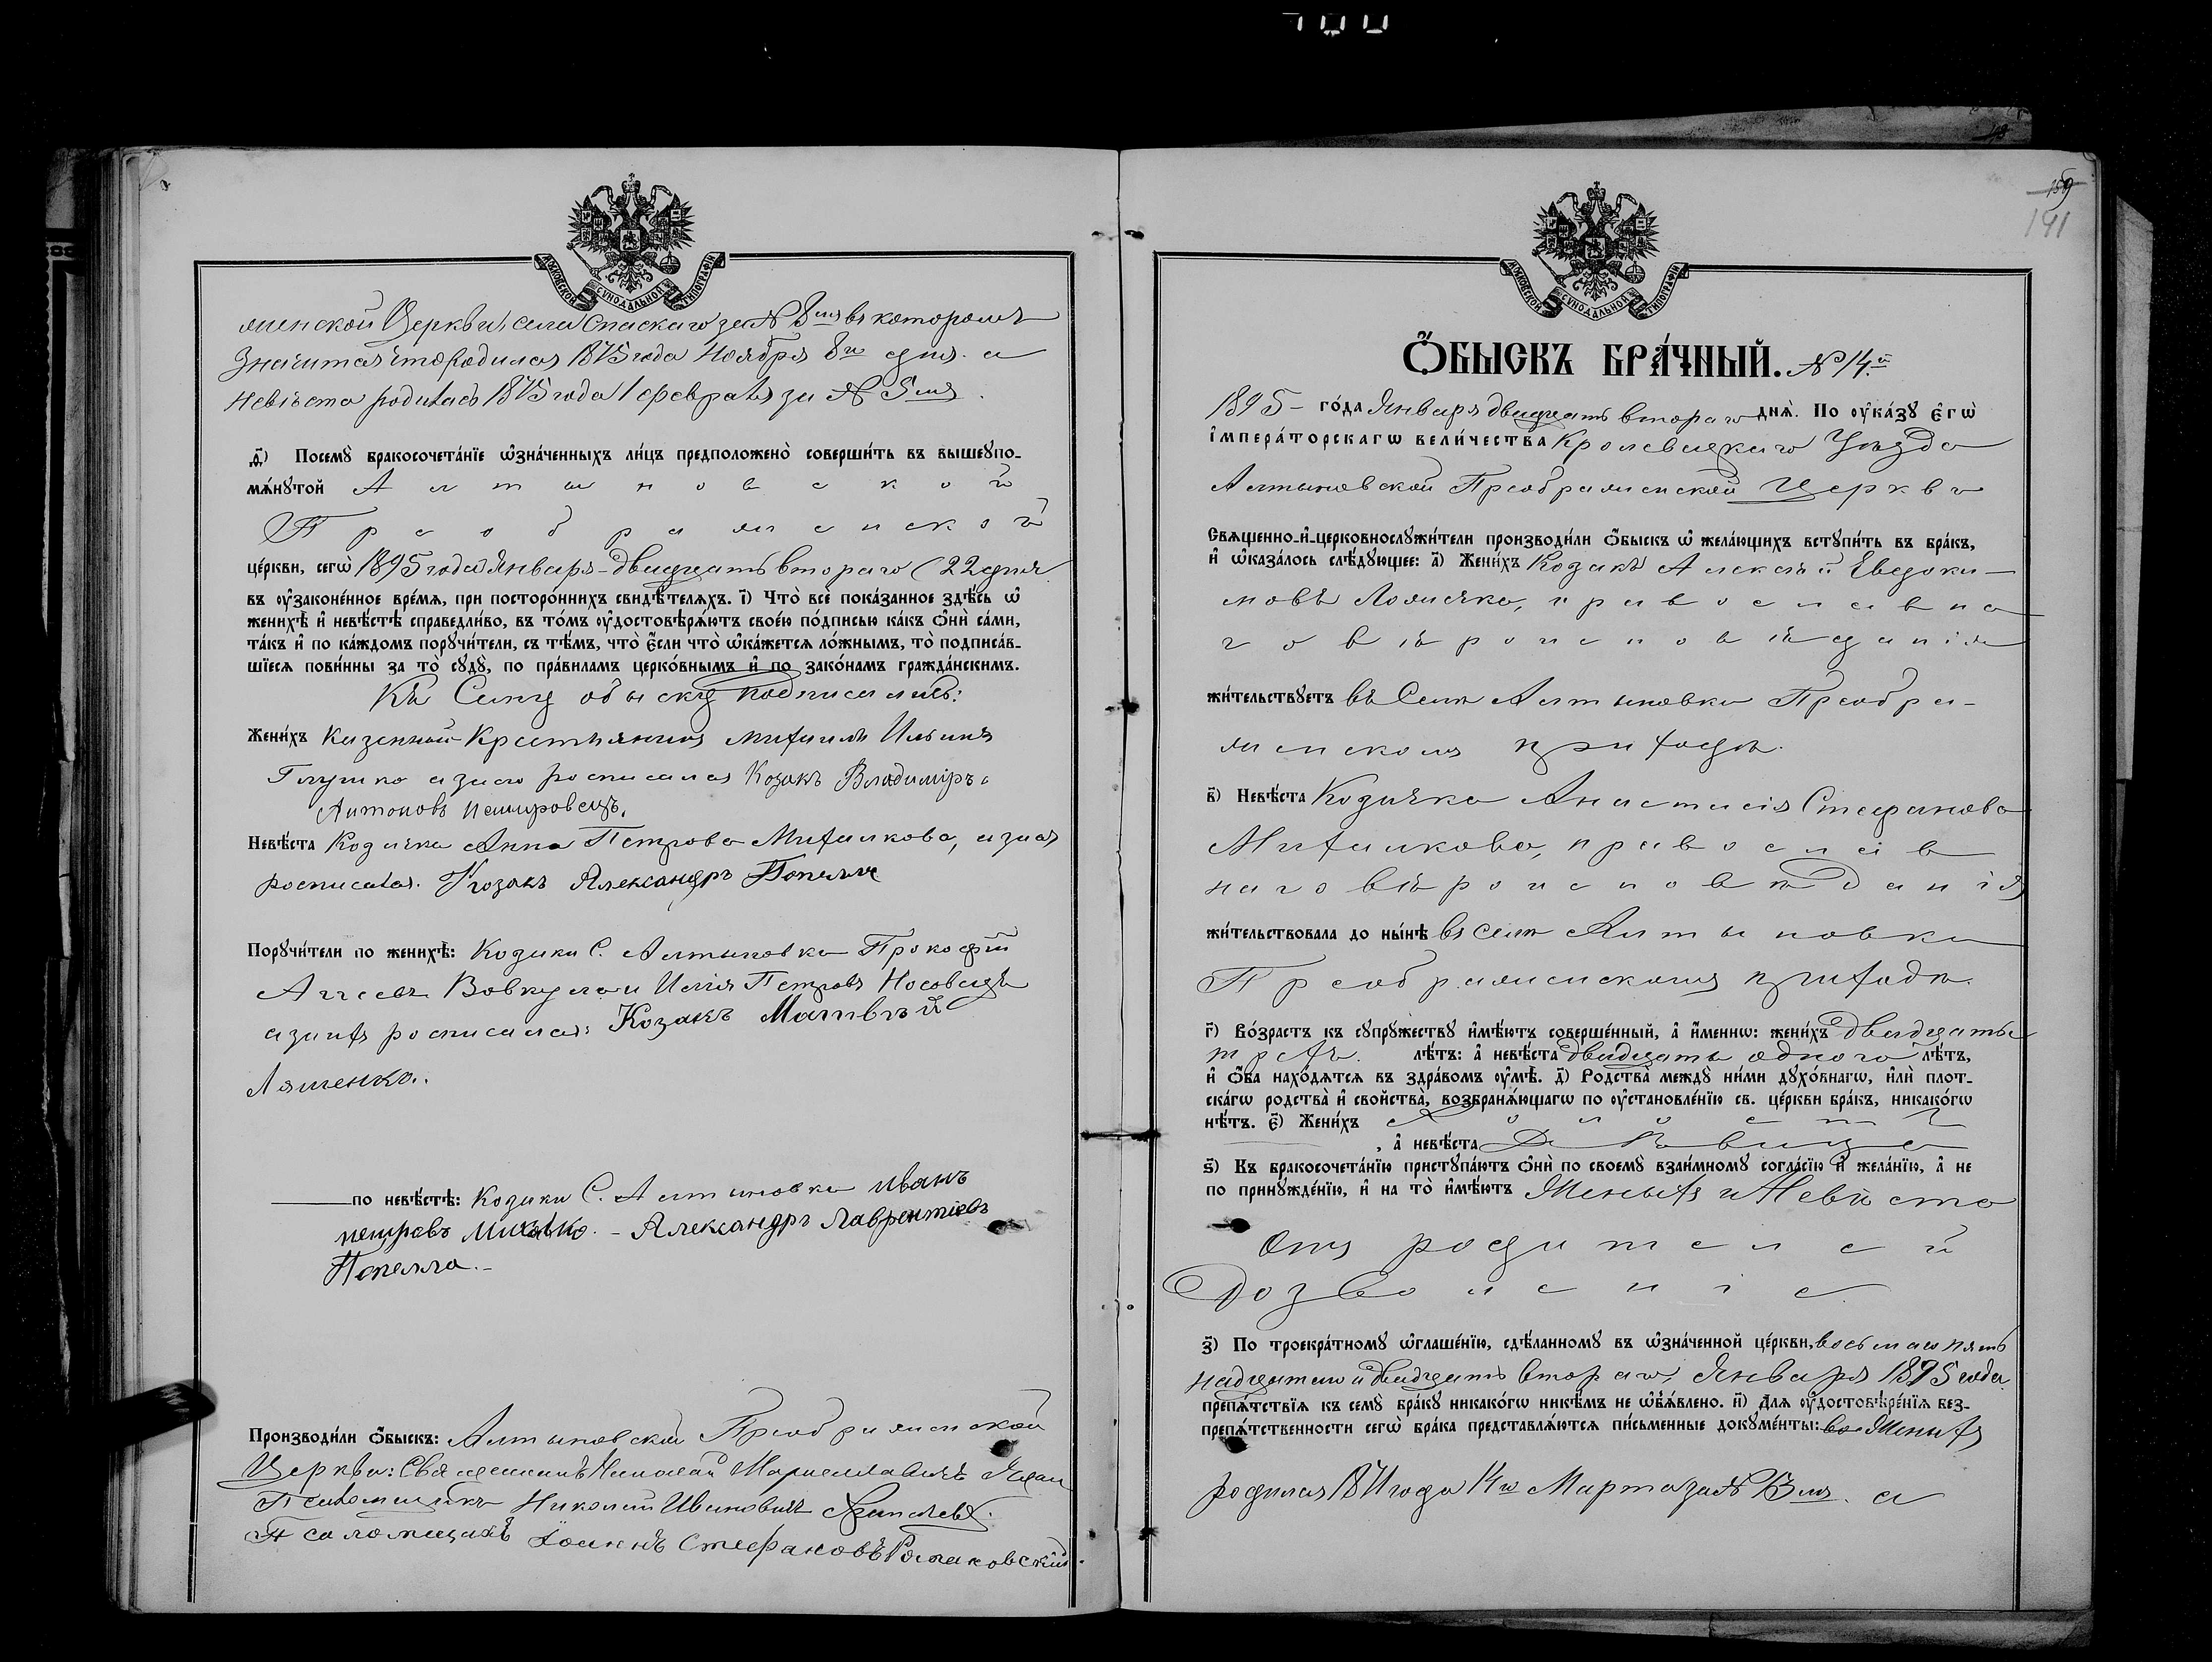 женской Церкви села Спаскаго за № 8мъ въ которомъ
Значится что Родился 1875 года Ноября 8го дня. а
Невѣста родилась 1875 года 1 февраля за № 5мъ.
МОСКОВСКОЙ СѴНОДАЛЬНОЙ ТИПОГРАФІИ
д҃) Посемꙋ̀ бракосочета́нїе ѡ҆зна́ченныхъ ли́цъ предположено̀ соверши́ть въ вышеꙋпо-
мѧ́нꙋтой Алтыновской
Преображенской
це́ркви, сегѡ̀ 1895 года Января - двадцать втораго (22 дня
въ ᲂу҆зако́ненное вре́мѧ, при посторо́ннихъ свидѣ́телѧхъ. і҃) Что̀ всѐ пока́занное здѣ́сь ѡ҆
женихѣ̀ и҆ невѣ́стѣ справедли́во, въ то́мъ ᲂу҆достовѣрѧ́ютъ свое́ю по́дписью ка́къ ѻ҆нѝ са́ми,
та́къ и҆ по ка́ждомъ порꙋчи́тели, съ тѣ́мъ, что̀ є҆́сли что̀ ѡ҆ка́жетсѧ ло́жнымъ, то̀ подписа́в-
шїесѧ пови́нны за то̀ сꙋдꙋ̀, по пра́виламъ церко́внымъ и҆ по зако́намъ гражда́нскимъ.
Къ Сему обыску подписались:
Жени́хъ Казенный Крестьянинъ Михаилъ Ильинъ
Глушко а за него росписался Козакъ Владиміръ
Антоновъ Немировецъ.
Невѣ́ста Козачка Анна Петрова Михалкова, а за нея
росписался. Козакъ Александръ Попелло
Порꙋчи́тели по женихѣ̀: Козаки С. Алтыновки Прокофій
Аггеевъ Вовкула и Илія Петровъ Носовецъ
а за нихъ росписался: Козакъ Матвѣй
Ляшенко.
по невѣ́стѣ: Козаки С. Алтыновки Иванъ
петровъ Михалко. - Александръ Лаврентіевъ
Попелло. -
Производи́ли ѻ҆́быскъ: Алтыновской Преображенской
Церкви: Священникъ Николай
Псаломщикъ Николай Ивановичъ
Псаломщикъ Іоаннъ Стефановъ Ромаковскій
159
141
МОСКОВСКОЙ СѴНОДАЛЬНОЙ ТИПОГРАФІИ
Ѻ҆́БЫСКЪ БРА́ЧНЫЙ. № 14й
1895 - го́да Января двадцать втораго днѧ̀. По ᲂу҆ка́зꙋ є҆гѡ̀
і҆мпера́торскагѡ вели́чества Кролевецкаго Уѣзда
Алтыновской Преображенской Церкви
Свѧщенно-и҆-церковнослꙋжи́тели производи́ли ѻ҆́быскъ ѡ҆ жела́ющихъ встꙋпи́ть въ бра́къ,
и҆ ѡ҆каза́лось слѣ́дꙋющее: а҃) Жени́хъ Козакъ Алексѣй Евдоки-
мовъ Ломечко, православна
го вѣроисповѣданія
жи́тельствꙋетъ въ Селѣ Алтыновки Преобра-
женскомъ приходѣ.
в҃) Невѣ́ста Козачка Анастасія Стефанова
Михалкова, православ
наго вѣроисповѣданія
жи́тельствовала до ны́нѣ въ Селѣ Алтыновки
Преображенскомъ приходѣ.
г҃) Во́зрастъ къ сꙋпрꙋ́жествꙋ и҆мѣ́ютъ соверше́нный, а҆ и҆́меннѡ: жени́хъ двадцать
трехъ. лѣ́тъ: а҆ невѣ́ста двадцать одного лѣ́тъ,
и҆ ѻ҆́ба нахо́дѧтсѧ въ здра́вомъ ᲂу҆мѣ̀. д҃) Родства̀ междꙋ̀ ни́ми дꙋхо́внагѡ, и҆лѝ плот-
ска́гѡ родства̀ и҆ сво́йства̀, возбранѧ́ющагѡ по ᲂу҆становле́нїю св. це́ркви бра́къ, никако́гѡ
нѣ́тъ. є҃) Жени́хъ Холостъ
, а҆ невѣ́ста Дѣвица
ѕ҃) Къ бракосочета́нїю пристꙋпа́ютъ ѻ҆нѝ по своемꙋ̀ взаи́мномꙋ согла́сїю и҆ жела́нїю, а҆ не
по принꙋжде́нїю, и҆ на то̀ и҆мѣ́ютъ Женихъ и Невѣста
Отъ родителей
Дозволеніе
з҃) По троекра́тномꙋ ѡ҆глаше́нїю, сдѣ́ланномꙋ въ ѡ҆зна́ченной це́ркви, восьмаго пят
надцатаго и двадцать втораго Января 1895 года
препѧ́тствїѧ къ семꙋ̀ бра́кꙋ никако́гѡ никѣ́мъ не ѡ҆б̾ѧ́влено. и҃) Длѧ ᲂу҆достовѣре́нїѧ без-
препѧ́тственности сегѡ̀ бра́ка представлѧ́ютсѧ пи́сьменные докꙋме́нты: Женихъ
родился 1871 года 14го Марта за № 13мъ. а